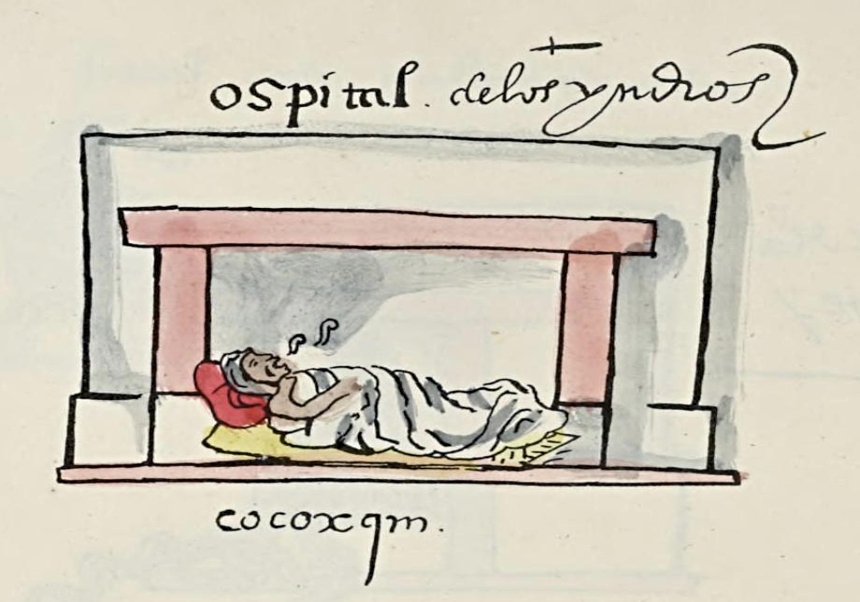 ospital. delos yndios
cocoxqm.